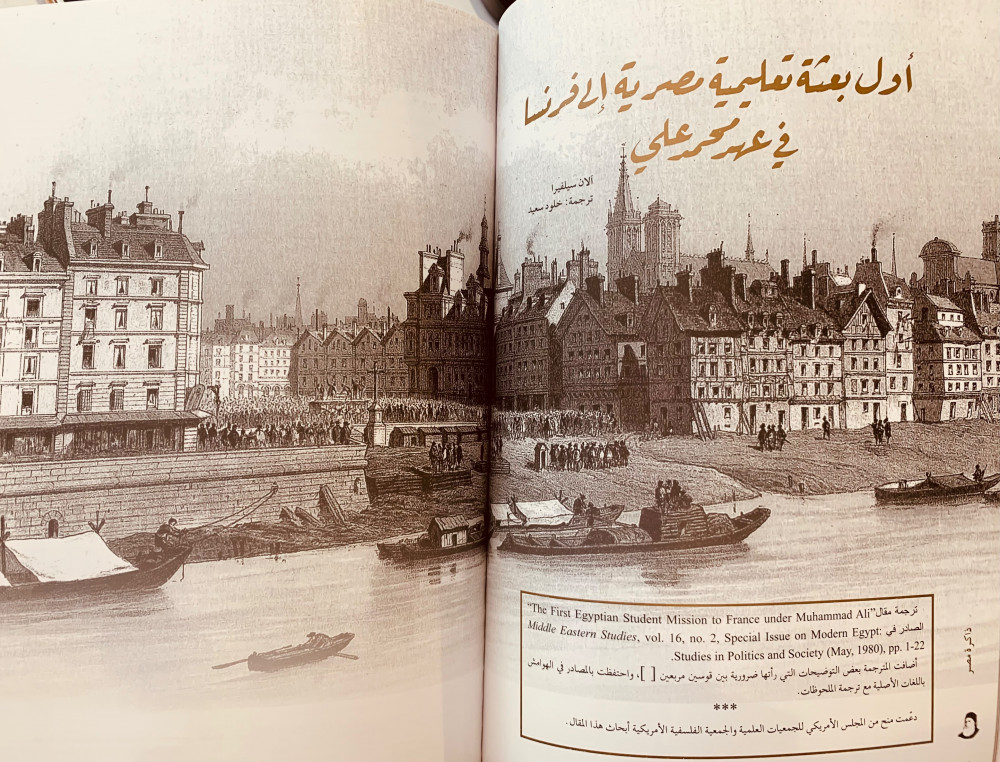 أول بعثة تعليمية مصرية إلى فرنسا
في عهد محمد علي
آلان سيلفيرا
ترجمة: خلود سعيد
ترجمة مقال "The First Egyptian Student Mission to France under Muhammad Ali"
الصادر في Middle Eastern Studies, vol. 16, no. 2, Special Issue on Modern Egypt:
Studies in Politics and Society (May, 1980), pp. 1-22.
أضافت المترجمة بعض التوضيحات التي رأتها ضرورية بين قوسين مربعين [ ]، واحتفظت بالمصادر في الهوامش
باللغات الأصلية مع ترجمة الملحوظات.
***
دعّمت منح من المجلس الأمريكي للجمعيات العلمية والجمعية الفلسفية الأمريكية أبحاث هذا المقال.
ذاكرة مصر